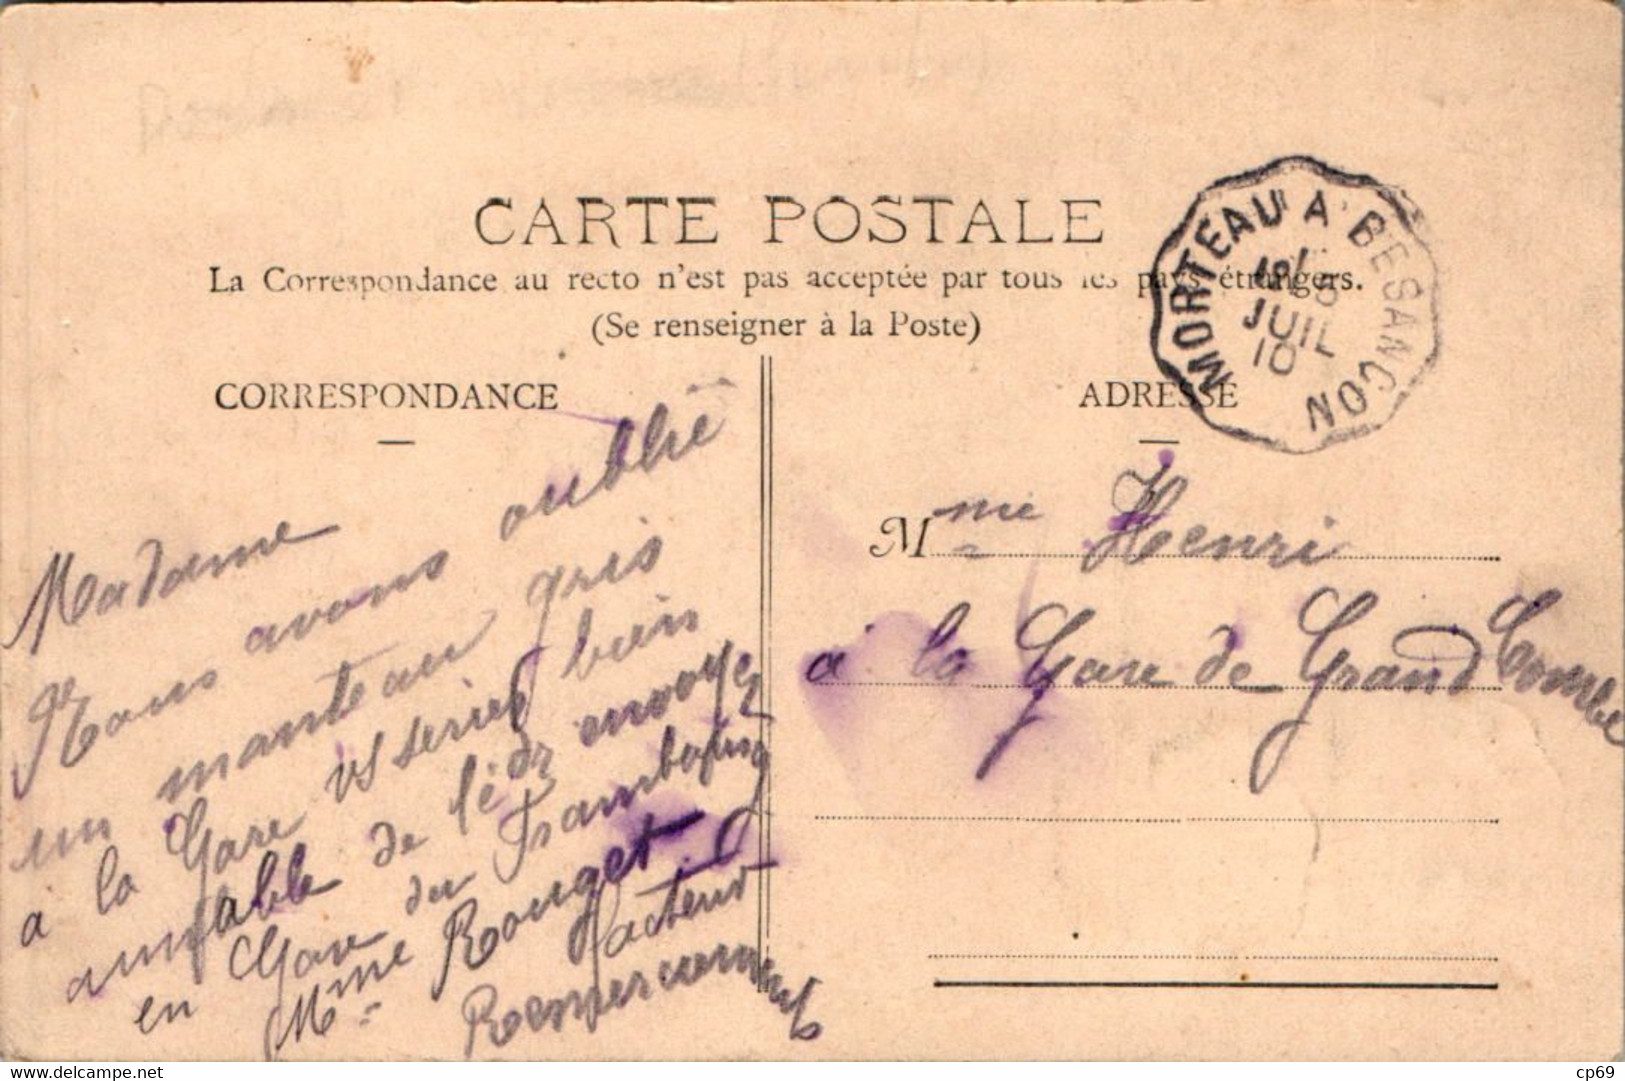 CARTE POSTALE
La Correspondance au recto n'est pas acceptée par tous les pays étrangers.
(Se renseigner à la Poste)
MORTEAU A BESANCON
JUIL
10
CORRESPONDANCE
ADRESSE
Madame
Nous avons oublié
un manteau gris
à la Gare vs seriez bien
aimable de le envoyez
en Gare du
Mme Rouget
facteur
Remerciements
Mme Henri
à la Gare de Grand Combe
delcampe.net
cp69